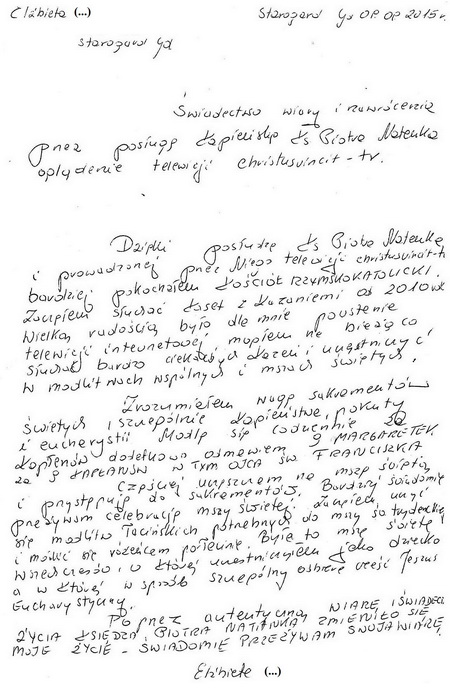 Elżbieta (...) Starogard Gd 08.08 2015 r.
Starogard Gd
Świadectwo wiary i nawrócenia
przez posługę kapłańską ks Piotra Natanka
oglądanie telewizji christusvincit-tv.
Dzięki posłudze ks Piotra Natanka
i prowadzonej przez Niego telewizji christusvincit-tv
bardziej pokochałam KOŚCIÓŁ RZYMSKOKATOLICKI.
Zaczęłam słuchać kaset z kazaniami od 2010 rok
Wielką radością było dla mnie powstanie
telewizji internetowej, mogłam na bieżąco
słuchać bardzo ciekawych kazań i uczestniczyć
w modlitwach wspólnych i mszach świętych.
Zrozumiałam wagę sakramentów
świętych i szczególnie kapłaństwa, pokuty
i eucharystii Modlę się codziennie za
kapłanów dodatkowo odmawiam 9 MARGARETEK
za 9 KAPŁANÓW W TYM OJCA ŚW. FRANCISZKA
Częściej uczęszczam na mszę świętą
i przystępuję do sakramentów. Bardziej świadomie
przeżywam celebrację mszy świętej. Zaczęłam uczyć
się modlitw łacińskich potrzebnych do mszy św trydenckiej
i modlić się różańcem po łacinie. Była to msza święta
wszechczasów, w której uczestniczyłam jako dziecko
a w której w sposób szczególny odbiera cześć Jezus
Eucharystyczny.
Poprzez autentyczną WIARĘ I ŚWIADEC
ŻYCIA KSIĘDZA PIOTRA NATANKA ZMIENIŁO SIĘ
MOJE ŻYCIE - ŚWIADOMIE PRZEŻYWAM SWOJĄ WIARĘ.
Elżbieta (...)